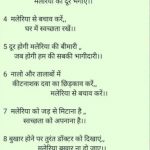 मलेरिया को दूर भगाएं।।
4 मलेरिया से बचाव करें,
घर में स्वच्छता रखें।।
5 दूर होगी मलेरिया की बीमारी ,
जब होगी हम की सबकी भागीदारी।।
6 नालो और तालाबों में
कीटनाशक दवा का छिड़काव करें,
मलेरिया से बचाव करें।।
7 मलेरिया को जड़ से मिटाना है ,
स्वच्छता को अपनाना है।।
8 बुखार होने पर तुरंत डॉक्टर को दिखाएं,
मलेरिया बुखार ना हो जाए।।